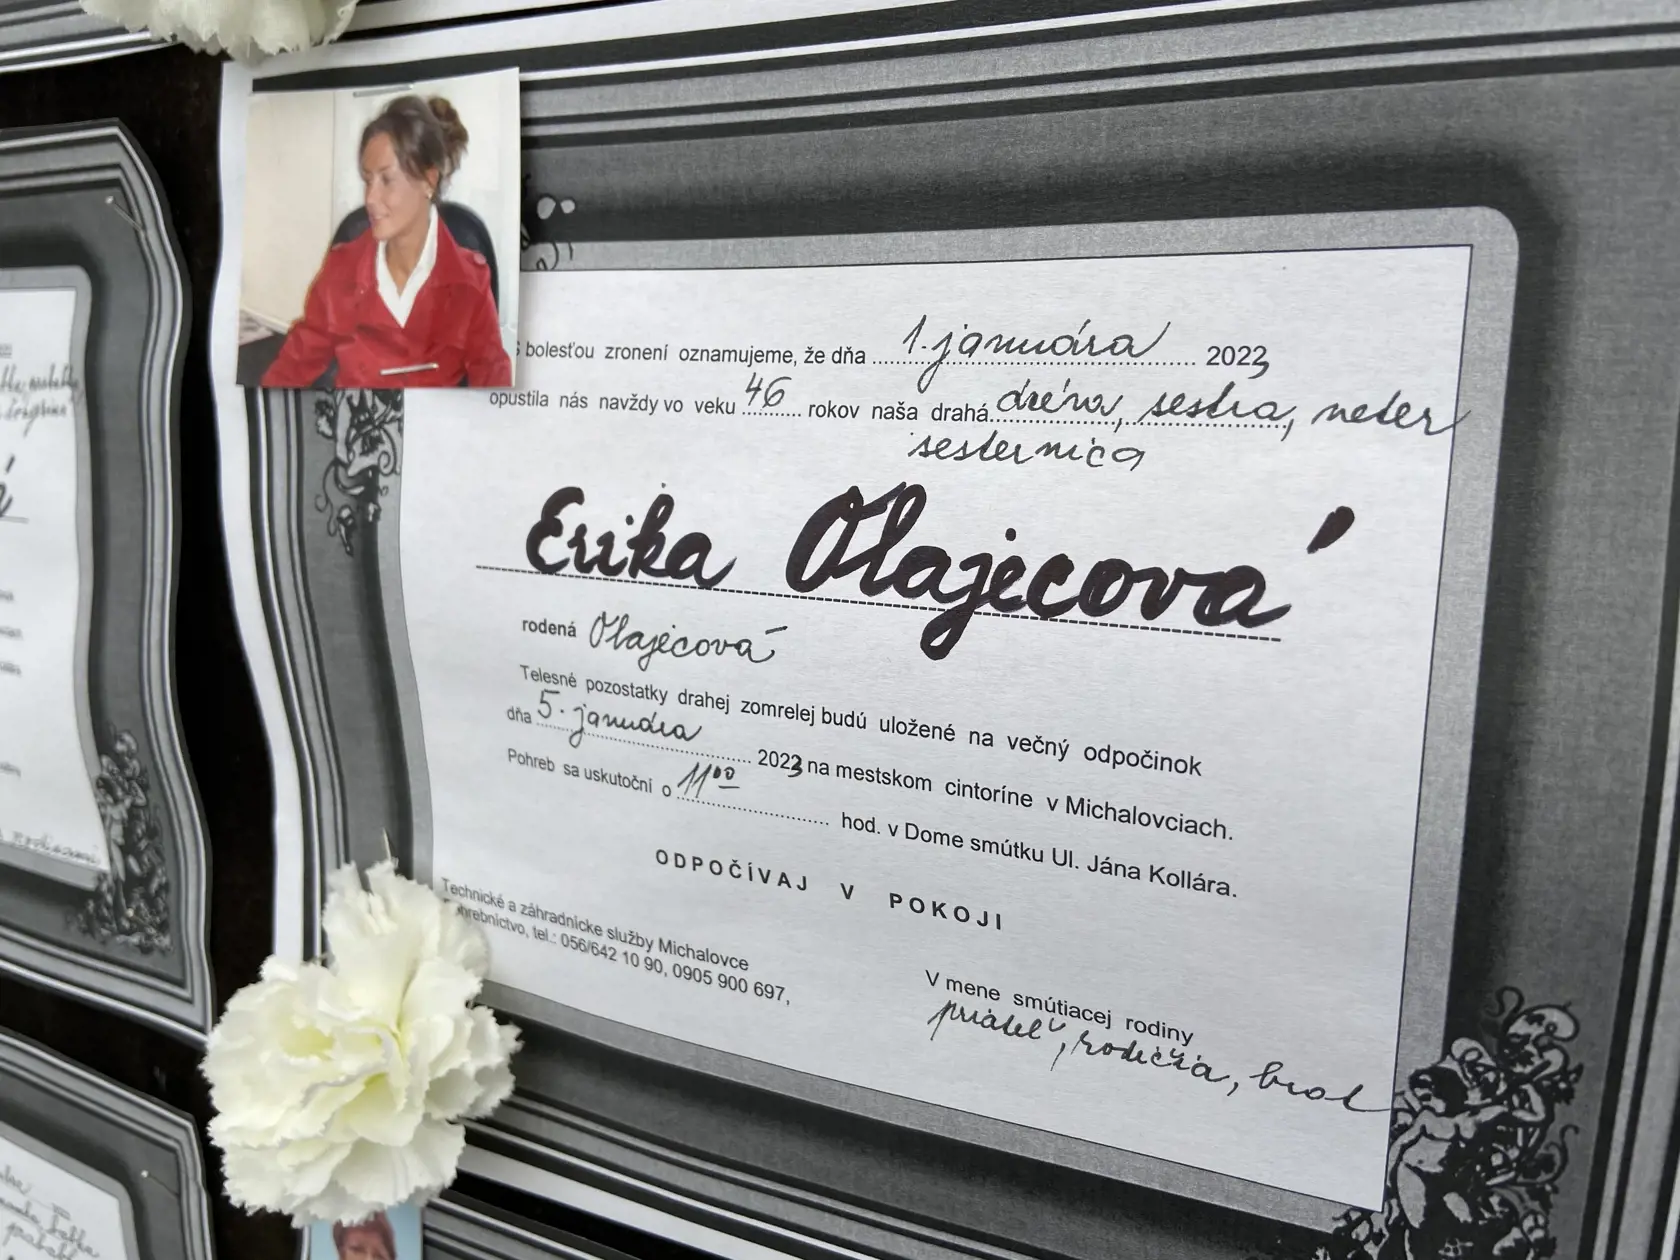 S bolesťou zronení oznamujeme, že dňa 1. januára 2023
opustila nás navždy vo veku 46 rokov naša drahá dcéra, sestra, neter
sesternica
Erika Olajecová
rodená Olajecová
Telesné pozostatky drahej zomrelej budú uložené na večný odpočinok
dňa 5. januára 2023 na mestskom cintoríne v Michalovciach.
Pohreb sa uskutoční o 11⁰⁰ hod. v Dome smútku Ul. Jána Kollára.
ODPOČÍVAJ V POKOJI
Technické a záhradnícke služby Michalovce
Pohrebníctvo, tel.: 056/642 10 90, 0905 900 697,
V mene smútiacej rodiny
priateľ, rodičia, brat